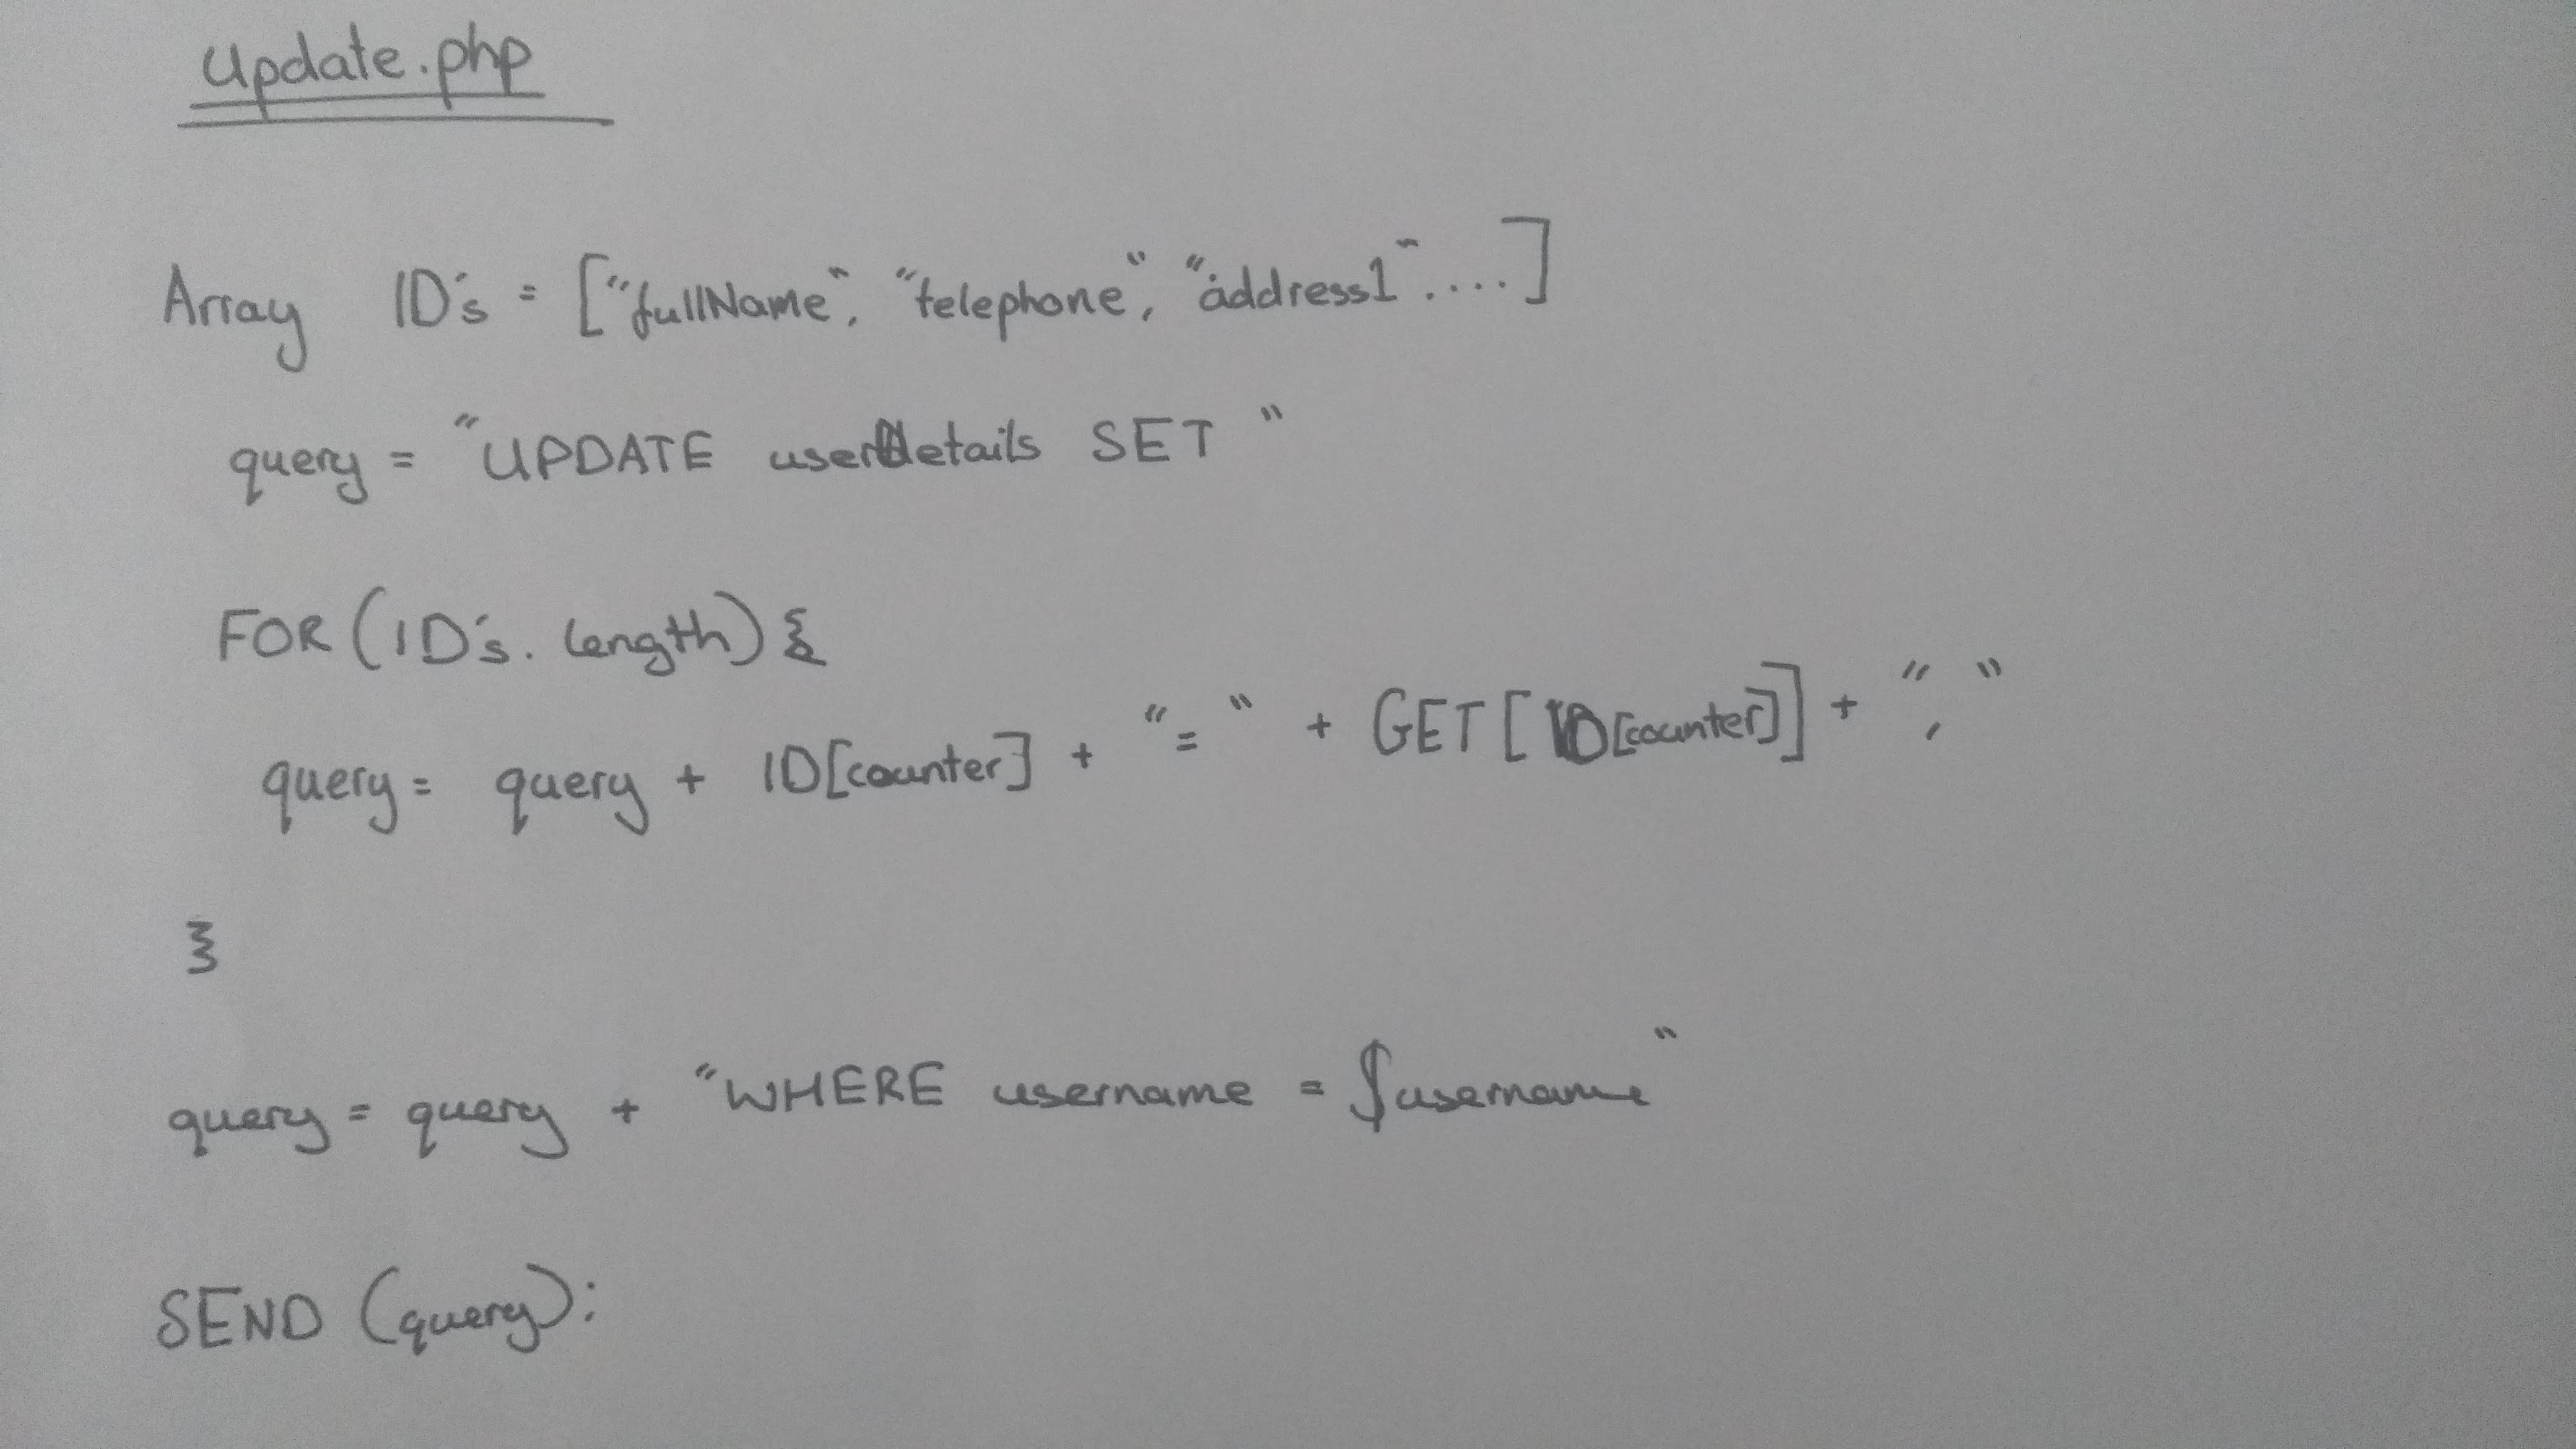 Update.php
Array ID's = ["fullName", "telephone", "address1"....]
query = "UPDATE userDetails SET "
FOR (ID's.length) {
query = query + ID[counter] + "=" + GET[ID[counter]] + ","
}
query = query + "WHERE username = $username"
SEND (query);